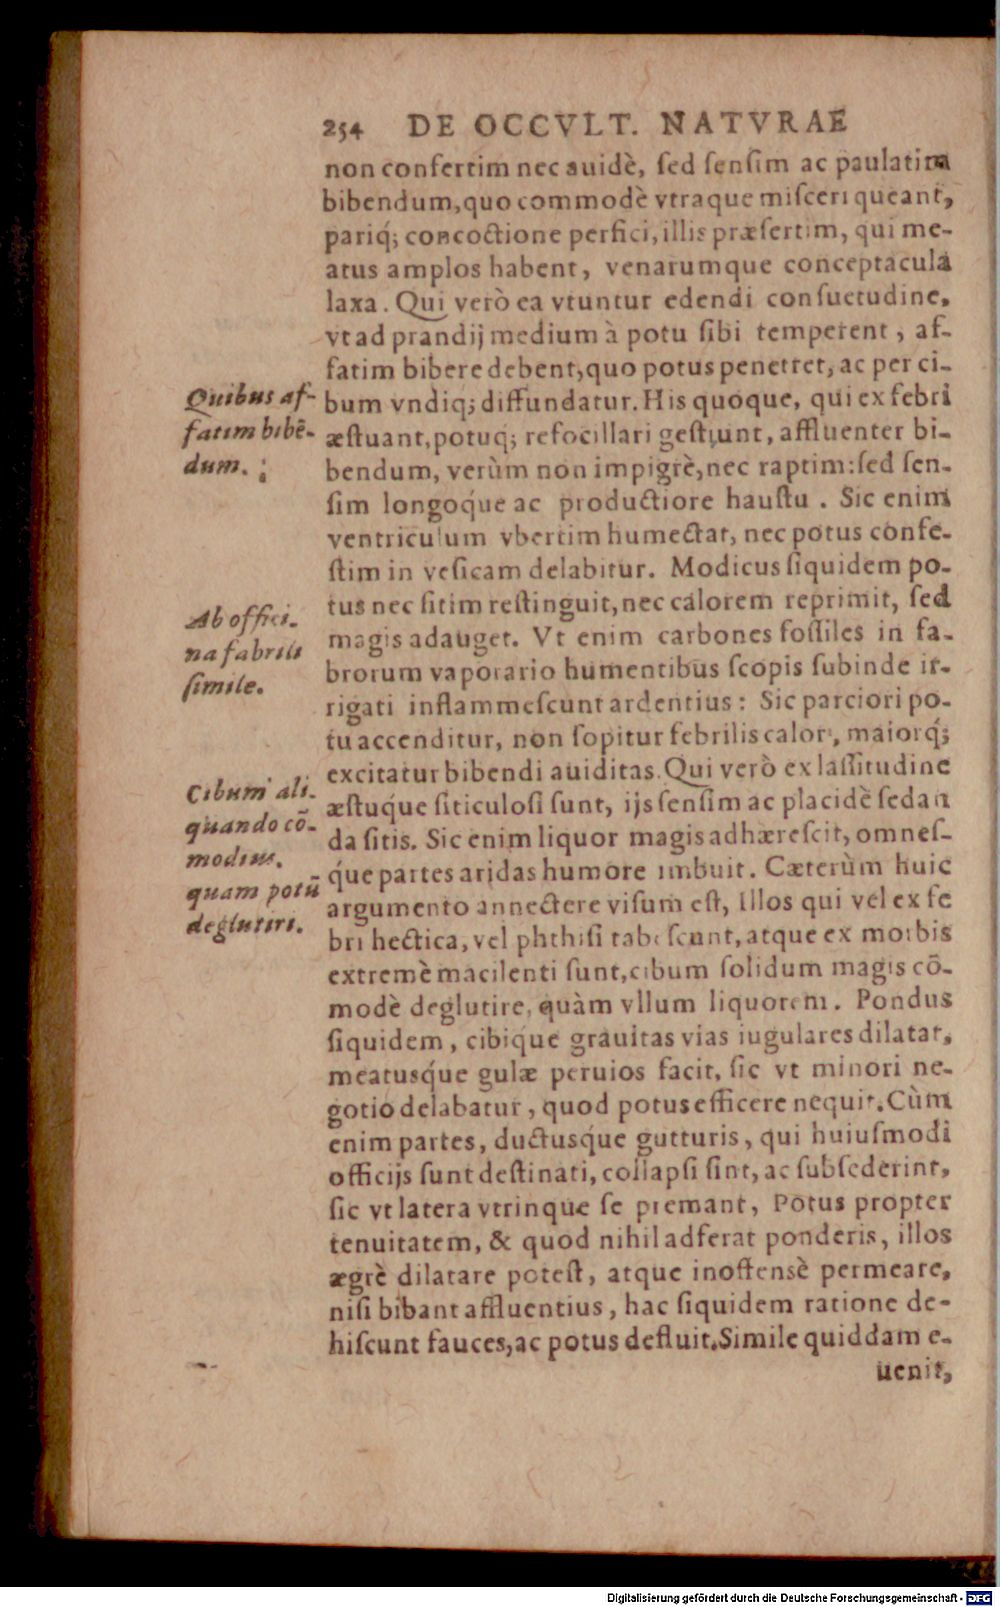 254 DE OCCVLT. NATVRAE
non confertim nec auidè, ſed ſenſim ac paulatim
bibendum, quo commodè vtraque miſceri queant,
pariq́; concoctione perfici, illis præſertim, qui me-
atus amplos habent, venarumque conceptacula
laxa. Qui verò ea vtuntur edendi conſuetudine,
vt ad prandij medium à potu ſibi temperent, af-
fatim bibere debent, quo potus penetret, ac per ci-
bum vndiq; diffundatur. His quoque, qui ex febri
æſtuant, potuq; refocillari geſtiunt, affluenter bi-
bendum, verùm non impigrè, nec raptim: ſed ſen-
ſim longoq́ue ac productiore hauſtu. Sic enim
ventriculum vbertim humectat, nec potus confe-
ſtim in veſicam delabitur. Modicus ſiquidem po-
tus nec ſitim reſtinguit, nec calorem reprimit, ſed
magis adauget. Vt enim carbones foſſiles in fa-
brorum vaporario humentibus ſcopis ſubinde ir-
rigati inflammeſcunt ardentius: Sic parciori po-
tu accenditur, non ſopitur febrilis calor, maiorq́;
excitatur bibendi auiditas. Qui verò ex laſſitudine
æſtuq́ue ſiticuloſi ſunt, ijs ſenſim ac placidè ſedan
da ſitis. Sic enim liquor magis adhæreſcit, omneſ-
q́ue partes aridas humore imbuit. Cæterùm huic
argumento annectere viſum eſt, Illos qui vel ex fe
bri hectica, vel phthiſi tabeſcunt, atque ex morbis
extremè macilenti ſunt, cibum ſolidum magis cō-
modè deglutire, quàm vllum liquorem. Pondus
ſiquidem, cibiq́ue grauitas vias iugulares dilatat,
meatusq́ue gulæ peruios facit, ſic vt minori ne-
gotio delabatur, quod potus efficere nequit. Cùm
enim partes, ductusq́ue gutturis, qui huiuſmodi
officijs ſunt deſtinati, collapſi ſint, ac ſubſederint,
ſic vt latera vtrinque ſe premant, Potus propter
tenuitatem, & quod nihil adferat ponderis, illos
ægrè dilatare poteſt, atque inoffensè permeare,
niſi bibant affluentius, hac ſiquidem ratione de-
hiſcunt fauces, ac potus defluit. Simile quiddam e-
uenit,
Quibus af-
fatim bibē-
dum.
Ab offici-
na fabrili
ſimile.
Cibum ali-
quando cō-
modius,
quam potū
deglutiri.
Digitalisierung gefördert durch die Deutsche Forschungsgemeinschaft - DFG